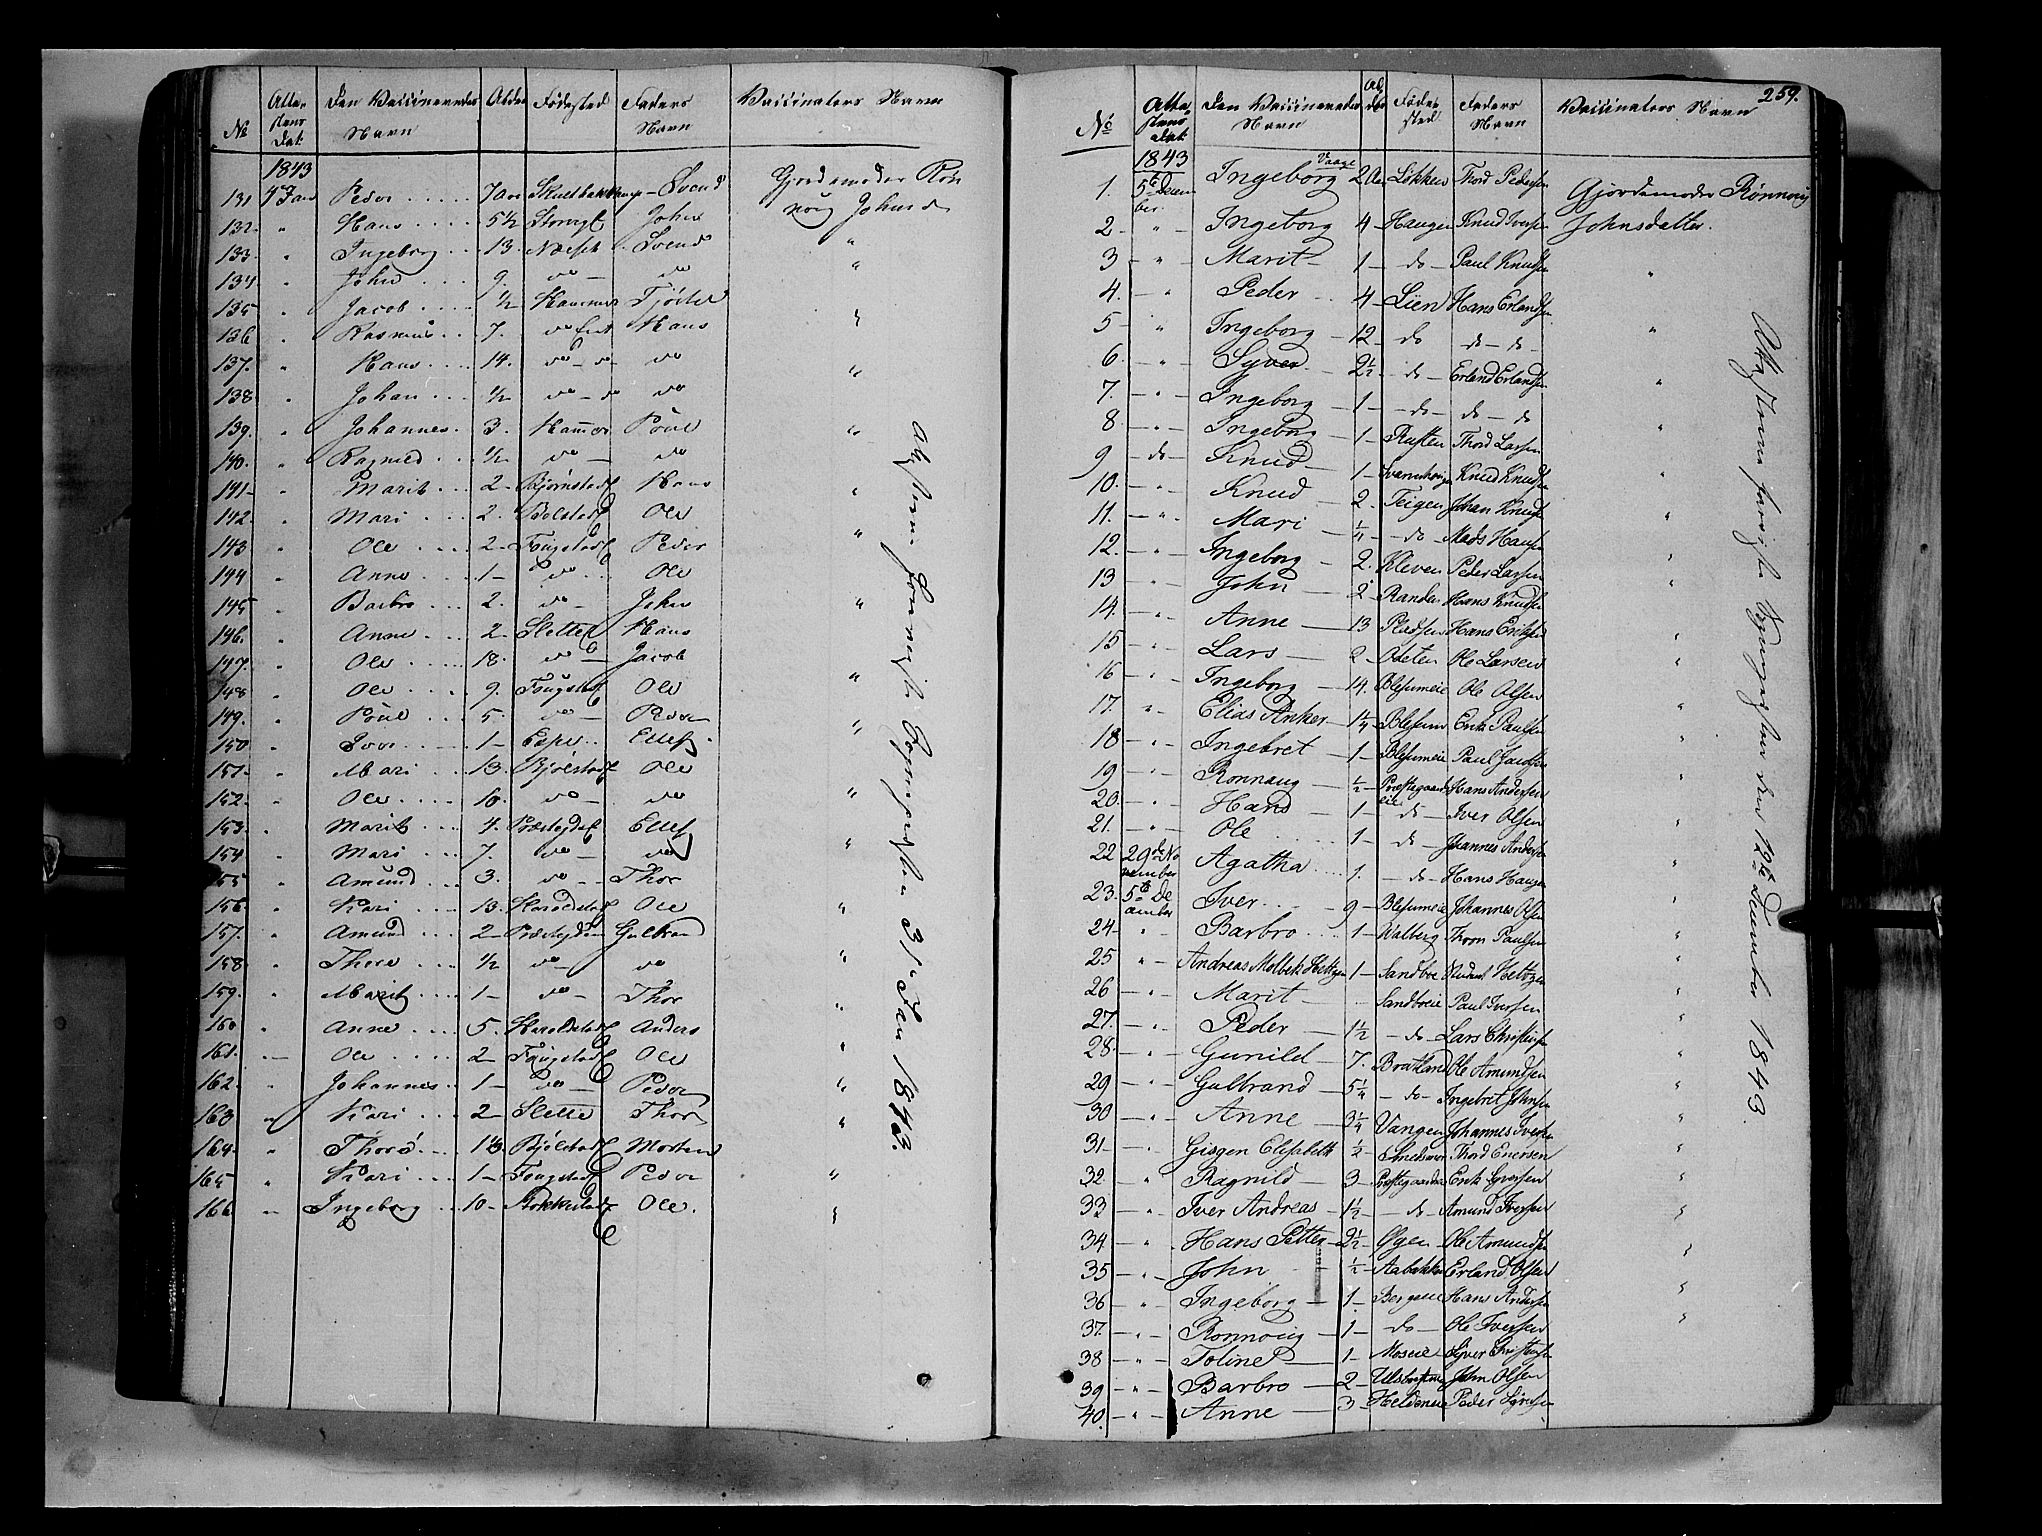 No Attestens Dat Den Vaccineredes Navn Alder Fødested Faders Navn Vaccinateurs Navn
1843
131 4 Jan Peder 7 aar Svend Gjordemoder Røn
132 " Hans 5½ Storvgt John noug Johnsd
133 " Ingeborg 13 Næsch Svend "
134 " John 9 do do "
135 " Jacob ½ Hammer
136 " Rasmus 7 do Hans "
137 " Hans 14 do do do "
138 " Johan ½ do do do
139 " Johannes 3 Hammer Poul "
140 " Ragnild ½ do do
141 " Marit 2 Bjørnstad Hans "
142 " Mari 2 Bolstad Ole
143 " Ole 2 Fougstad Peder "
144 " Anne 1 do Ole
145 " Barbro 2 do John "
146 " Anne 2 Slette Hans
147 " Ole 18 do Jacob
148 " Ole 9 Fougstad Ole "
149 " Poul 5 do Peder "
150 " Iver 1 Espe Ellef
151 " Mari 13 Bjølstad Ole
152 " Ole 10 do do "
153 " Marit 4 Ellef
154 " Mari 7 do do "
155 " Amund 3 do Thor
156 " Kari 13 Ole "
157 " Amund 2 Gulbrand
158 " Thore ½ do do "
159 " Marit 1 do Thor "
160 " Anne 5 Haroldstad Anders
161 " Ole 2 Fougstad Ole "
162 " Johannes 1 do Peder "
163 " Kari 2 Slette Thor "
164 " Thore Bjølstad Morten
165 " Kari 1 Fougstad Peder "
166 " Ingeborg 10 Stokkestad Ole "
31 Jan 1843.
259.
No Attestens Dat Den Vaccineredes Navn Alder Fødested Faders Navn Vaccinateurs Navn
1843 Vaage
1. 5te Decem Ingeborg 2 Aar Løkken Thord Pedersen Gjordemoder Rønnoug
ber
2 " Ingeborg 4 Haugen Knud Iversen Johnsdatter.
3 " Marit 1 do Paul Knudsen "
4. " Peder 4 Lien Hans Erlandsen
5 " Ingeborg 12 do do do "
6. " Syver 2½ do Erland Erlandsen "
7. " Ingeborg 1 do do do
8 " Ingeborg 1 Rusten Thord Larsen "
9 do Knud 1 Knud Knudsen "
10. " Knud 2 Teigen Johan Knudsen
11. " Mari ¼ do Mads Hansen "
12. " Ingeborg 2 Kleven Peder Larsen "
13 " John 2 Randen Hans Knudsen "
14. " Anne 13 Pladsen Hans Eriksen
15 " Lars 2 Ødeten Ole Larsen "
16 " Ingeborg 14 Blesumeie Ole Olsen "
17. " Elias Anker 1¼ Blesum Erik Paulsen "
18 " Ingebret 1 Blesumeie Paul "
19 " Ronnaug ½ Præstegaards Hans Andersen "
20. " Hans 1 do Iver Olsen
21. " Ole 1 do Johannes Andersen "
22 29de No Agatha 1 do Hans Haugen "
vember
23. 5te De Iver 9 Blesumeie Johannes Olsen "
cember
24 " Barbro 1 Walberg Thron Paulsen "
25 " Andreas Molbek Heltzen 1 Sandboe Heltzen "
26 " Marit Sandboeie Paul Iversen "
27. " Peder 1½ do Lars "
28. " Gunild 7 Bratland Ole Amundsen "
29 " Gulbrand 5¼ do Ingebret Johnsen "
30 " Anne 3¼ Vangen Johannes Iversen "
31 " Elisabeth ½ Thord Enersen "
32 " Ragnild 3 Erik Syversen "
33 " Iver Andreas 1½ do Amund Iversen "
34 " Hans Petter 2½ Øyen Ole Amundsen "
35 " John ½ Aabakken Erland Olsen "
36 " Ingeborg 1 Bergeeie Hans Andersen "
37. " Ronnoug 1 do Ole Iversen "
38 " Toline 1 Moseie Syver
39 " Barbro 2 John Olsen
40. " Anne 3 Peder Syversen
den 12te December 1843.